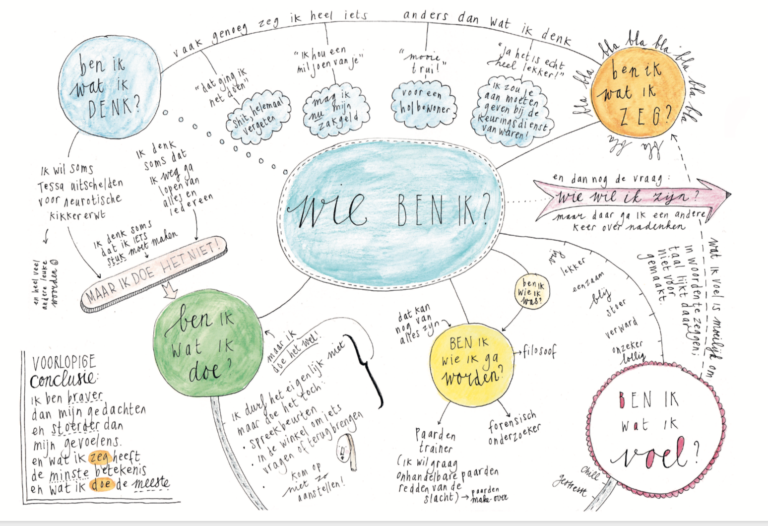 ben ik
wat ik
DENK?
vaak genoeg zeg ik heel iets anders dan wat ik denk
"dat ging ik
net doen"
shit, helemaal
vergeten
"Ik hou een
miljoen van je"
mag ik
nu mijn
zakgeld
"mooie
trui"
voor een
holbewoner
"Ja het is echt
heel lekker!"
ik zou je
aan moeten
geven bij de
keuringsdienst
van waren!
bla bla bla bla bla bla bla bla
ben ik
wat ik
ZEG?
bla bla
Ik wil soms
Tessa uitschelden
voor neurotische
kikkererwt
en heel veel
andere
woorden
ik denk
soms dat
ik weg ga
lopen van
alles en
iedereen
ik denk soms
dat ik iets
stuk moet maken
MAAR IK DOE HET NIET!
wie BEN IK?
en dan nog de vraag:
wie wil ik zijn?
maar daar ga ik een andere
keer over nadenken
wat ik voel is moeilijk om
in woorden te zeggen,
taal lijkt daar
niet voor
gemaakt.
ben ik
wat ik
doe?
maar ik
doe het wel!
ik durf het eigenlijk niet
maar doe het toch:
• spreekbeurten
• in de winkel om iets
vragen of terugbrengen
kom op
niet zo
aanstellen!
ben ik
wie ik
was?
dat kan
nog van
alles zijn
BEN IK
wie ik ga
worden?
filosoof
forensisch
onderzoeker
Paarden
trainer
(ik wil graag
onhandelbare paarden
redden van de
slacht)
paarden
make-over
lekker
eenzaam
blij
stoer
verward
onzeker
lollig
BEN IK
wat ik
voel?
chill
gestrest
VOORLOPIGE
conclusie:
ik ben braver
dan mijn gedachten
en stoerder dan
mijn gevoelens.
en wat ik zeg heeft
de minste betekenis
en wat ik doe de meeste